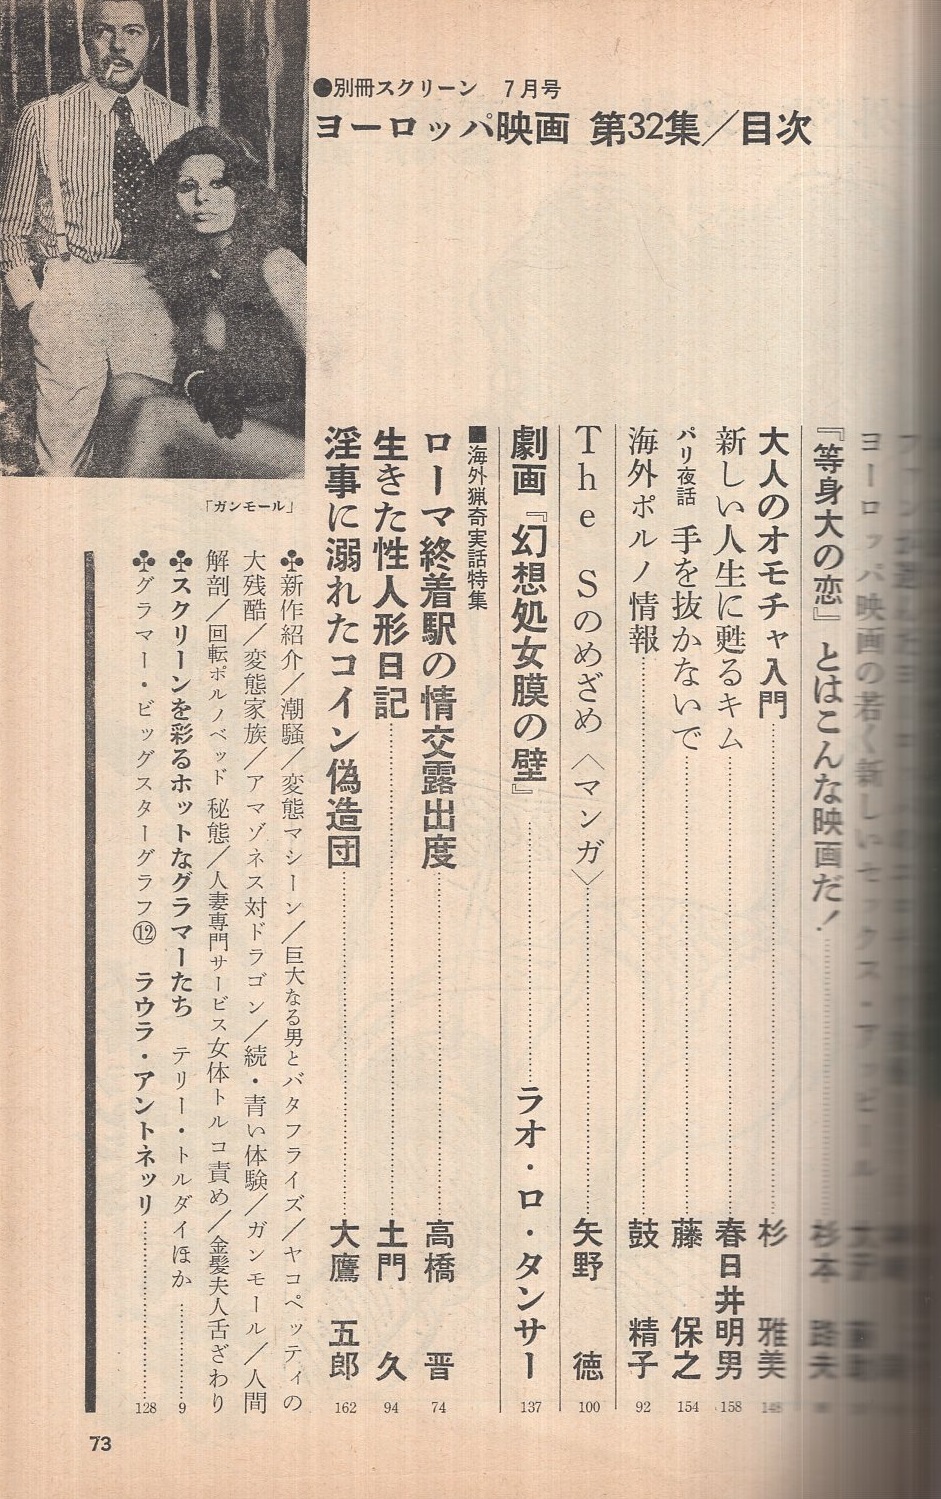 ●別冊スクリーン 7月号
ヨーロッパ映画 第32集／目次
ヨーロッパ映画の若く新しいセックス・アッピール
『等身大の恋』とはこんな映画だ！ 杉本
大人のオモチャ入門 杉 雅美 148
新しい人生に甦るキム 春日井明男 158
パリ夜話 手を抜かないで 藤 保之 154
海外ポルノ情報 鼓 精子 92
The Sのめざめ〈マンガ〉 矢野 徳 100
劇画『幻想処女膜の壁』 ラオ・ロ・タンサー 137
■海外猟奇実話特集
ローマ終着駅の情交露出度 高橋 晋 74
生きた性人形日記 土門 久 94
淫事に溺れたコイン偽造団 大鷹 五郎 162
「ガンモール」
♣新作紹介／潮騒／変態マシーン／巨大なる男とバタフライズ／ヤコペッティの
大残酷／変態家族／アマゾネス対ドラゴン／続・青い体験／ガンモール／人間
解剖／回転ポルノベッド 秘態／人妻専門サービス女体トルコ責め／金髪夫人舌ざわり
♣スクリーンを彩るホットなグラマーたち テリー・トルダイほか 9
♣グラマー・ビッグスターグラフ⑫ ラウラ・アントネッリ 128
73